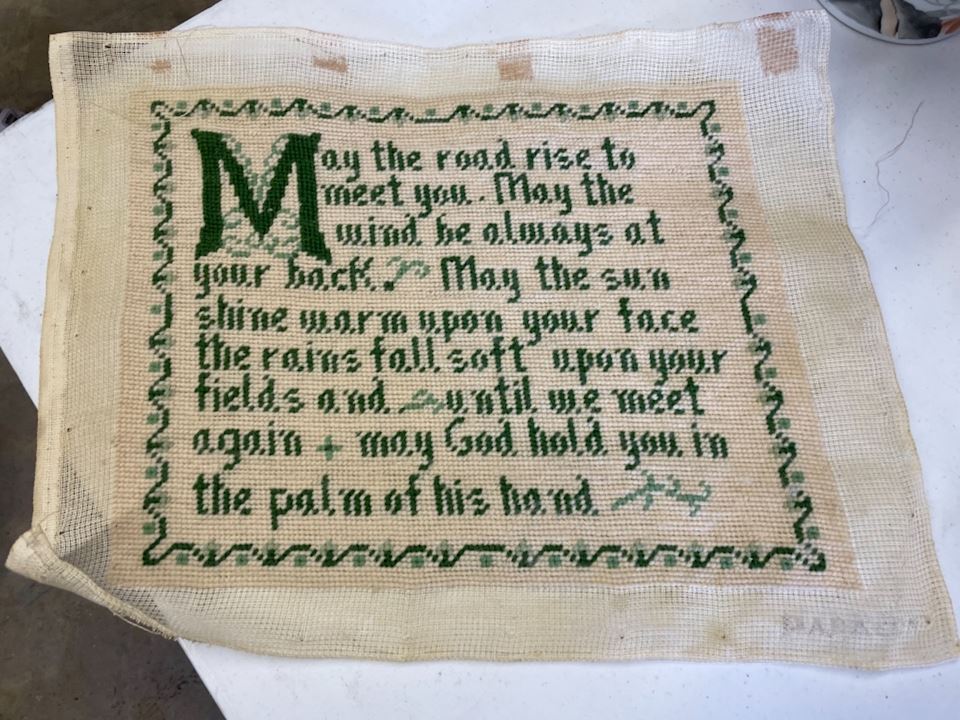 May the road rise to
meet you. May the
wind be always at
your back. May the sun
shine warm upon your face
the rains fall soft upon your
fields and until we meet
again + may God hold you in
the palm of his hand